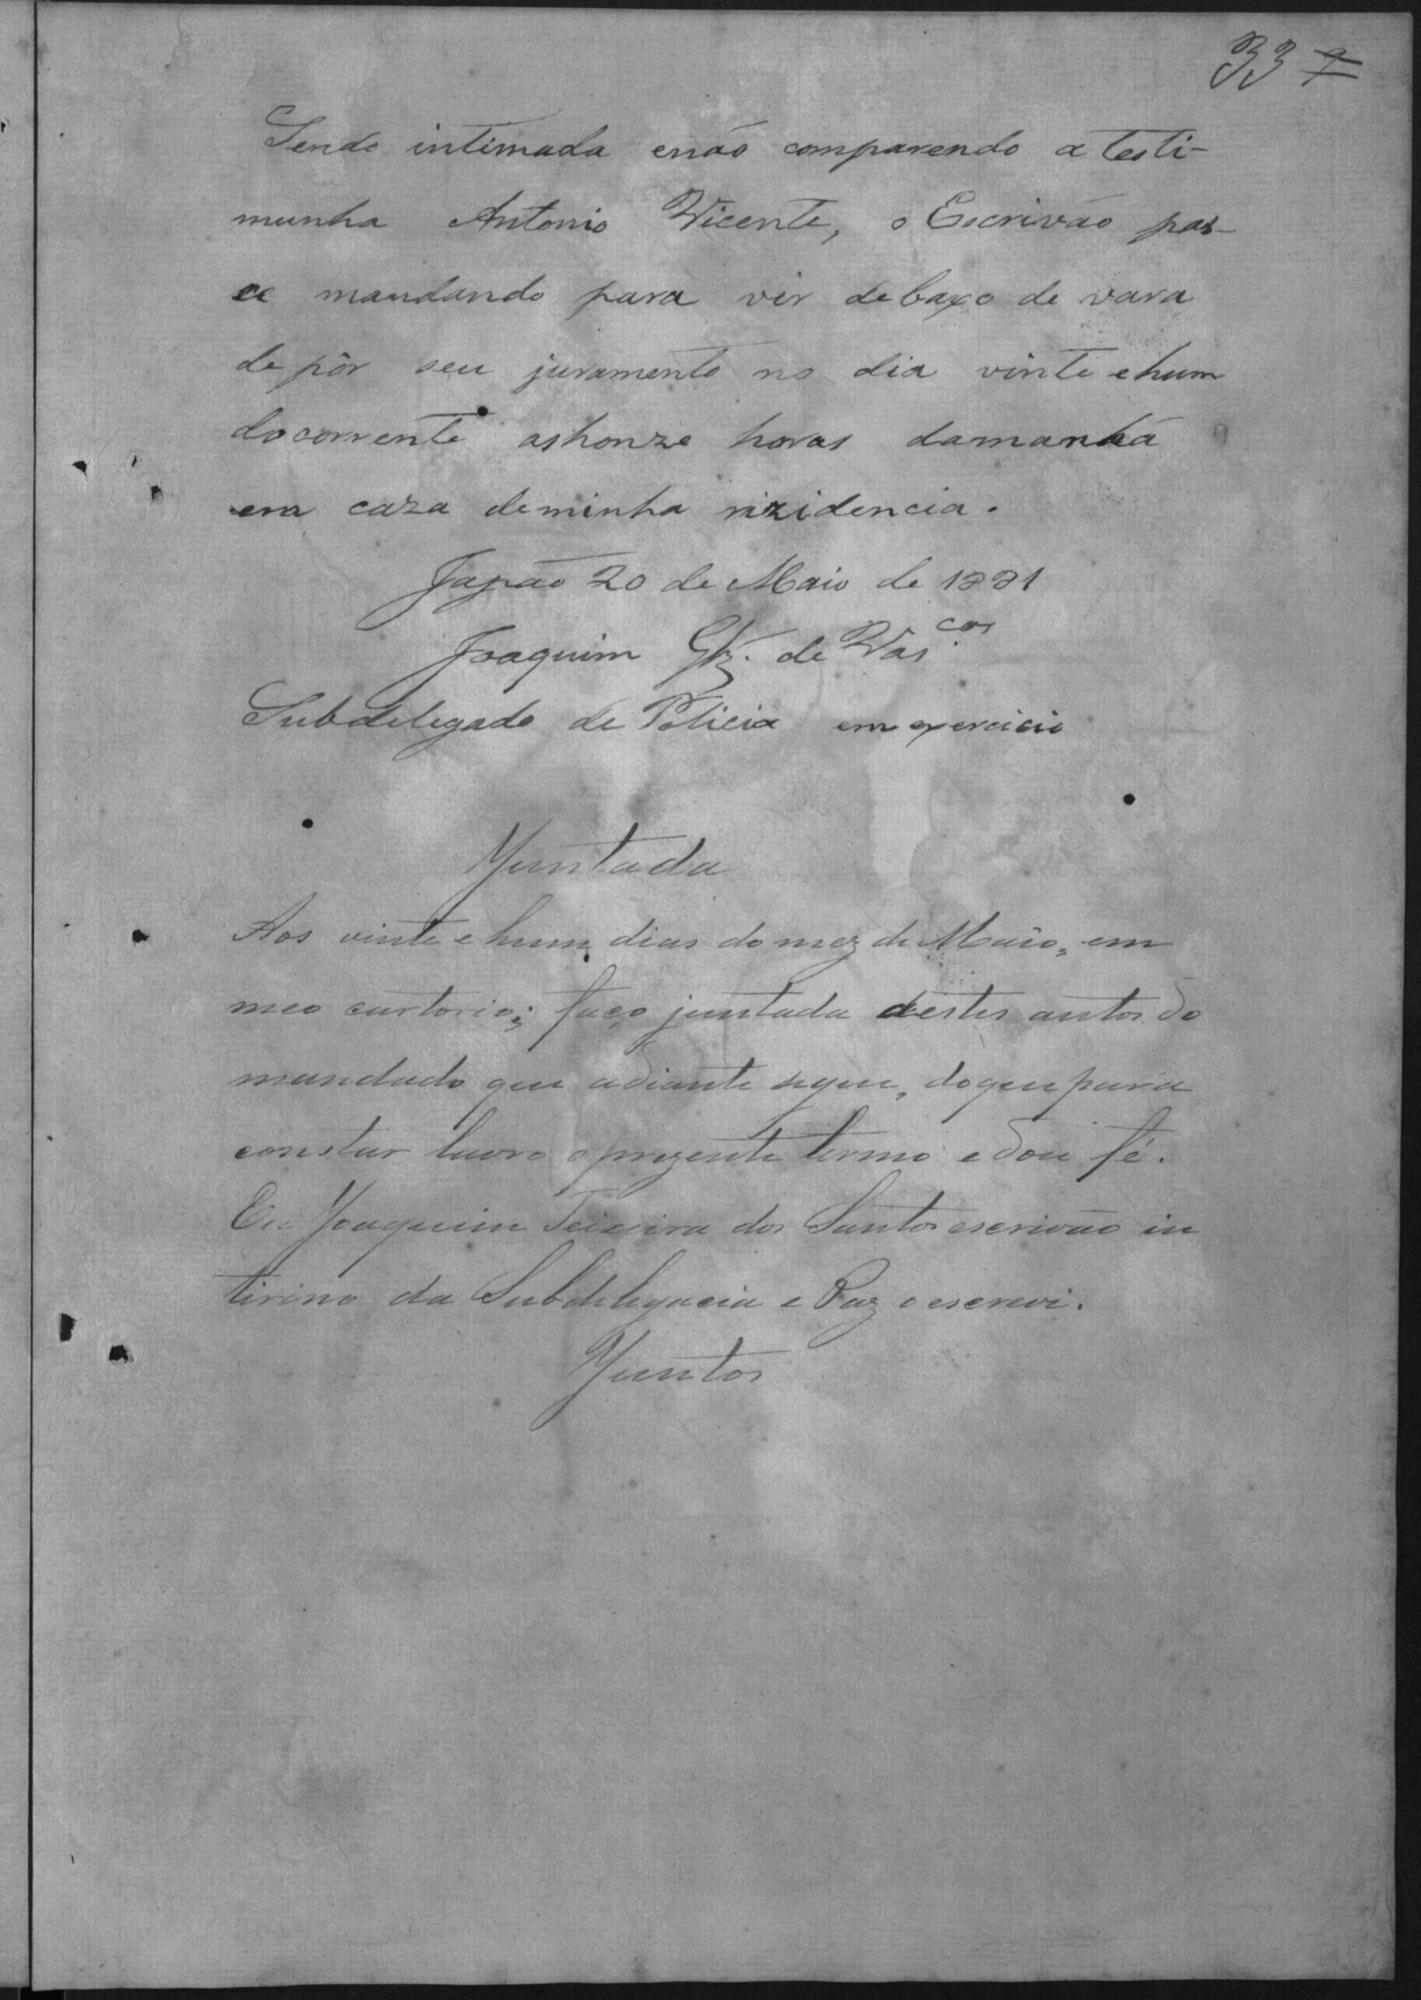 33 7
Sendo intimada enão comparendo a testi-
munha Antonio Vicente, o Escrivão pas-
ce mandando para vir debaxo de vara
depôr seu juramento no dia vinte ehum
docorrente ashonze horas damanhã
em caza deminha rizidencia.
Japão 20 de Maio de 1881
Joaquim Glz. de Vas.cos
Subdelegado de Policia em exercicio
Juntada
Aos vinte e hum dias do mez de Maio, em
meo cartorio; faço juntada destes autos do
mandado que adiante segue, doque para
constar lavro o prezente termo e dou fé.
Eu Joaquim Teixeira dos Santos escrivão in
tirino da Subdelegacia e Paz o escrevi.
Juntos